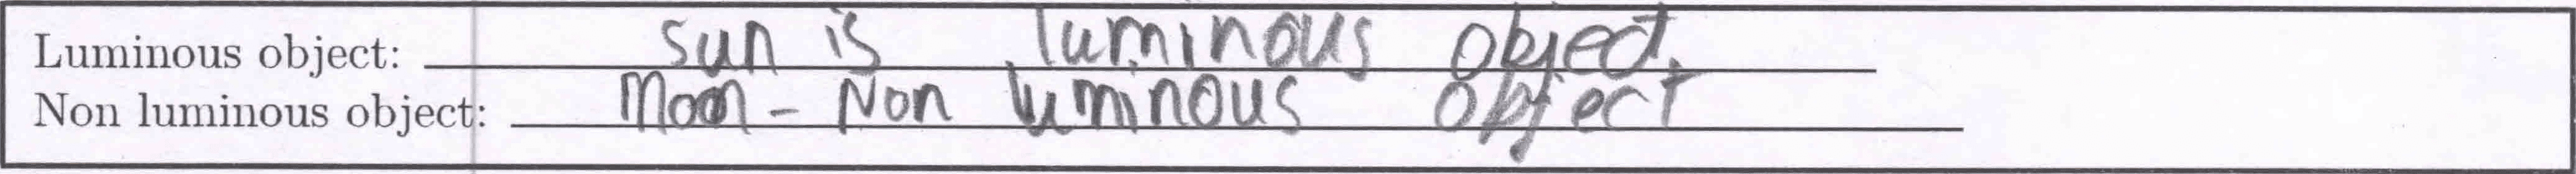 Luminous object: sun is luminous object.
Non luminous object: Moon - Non luminous object